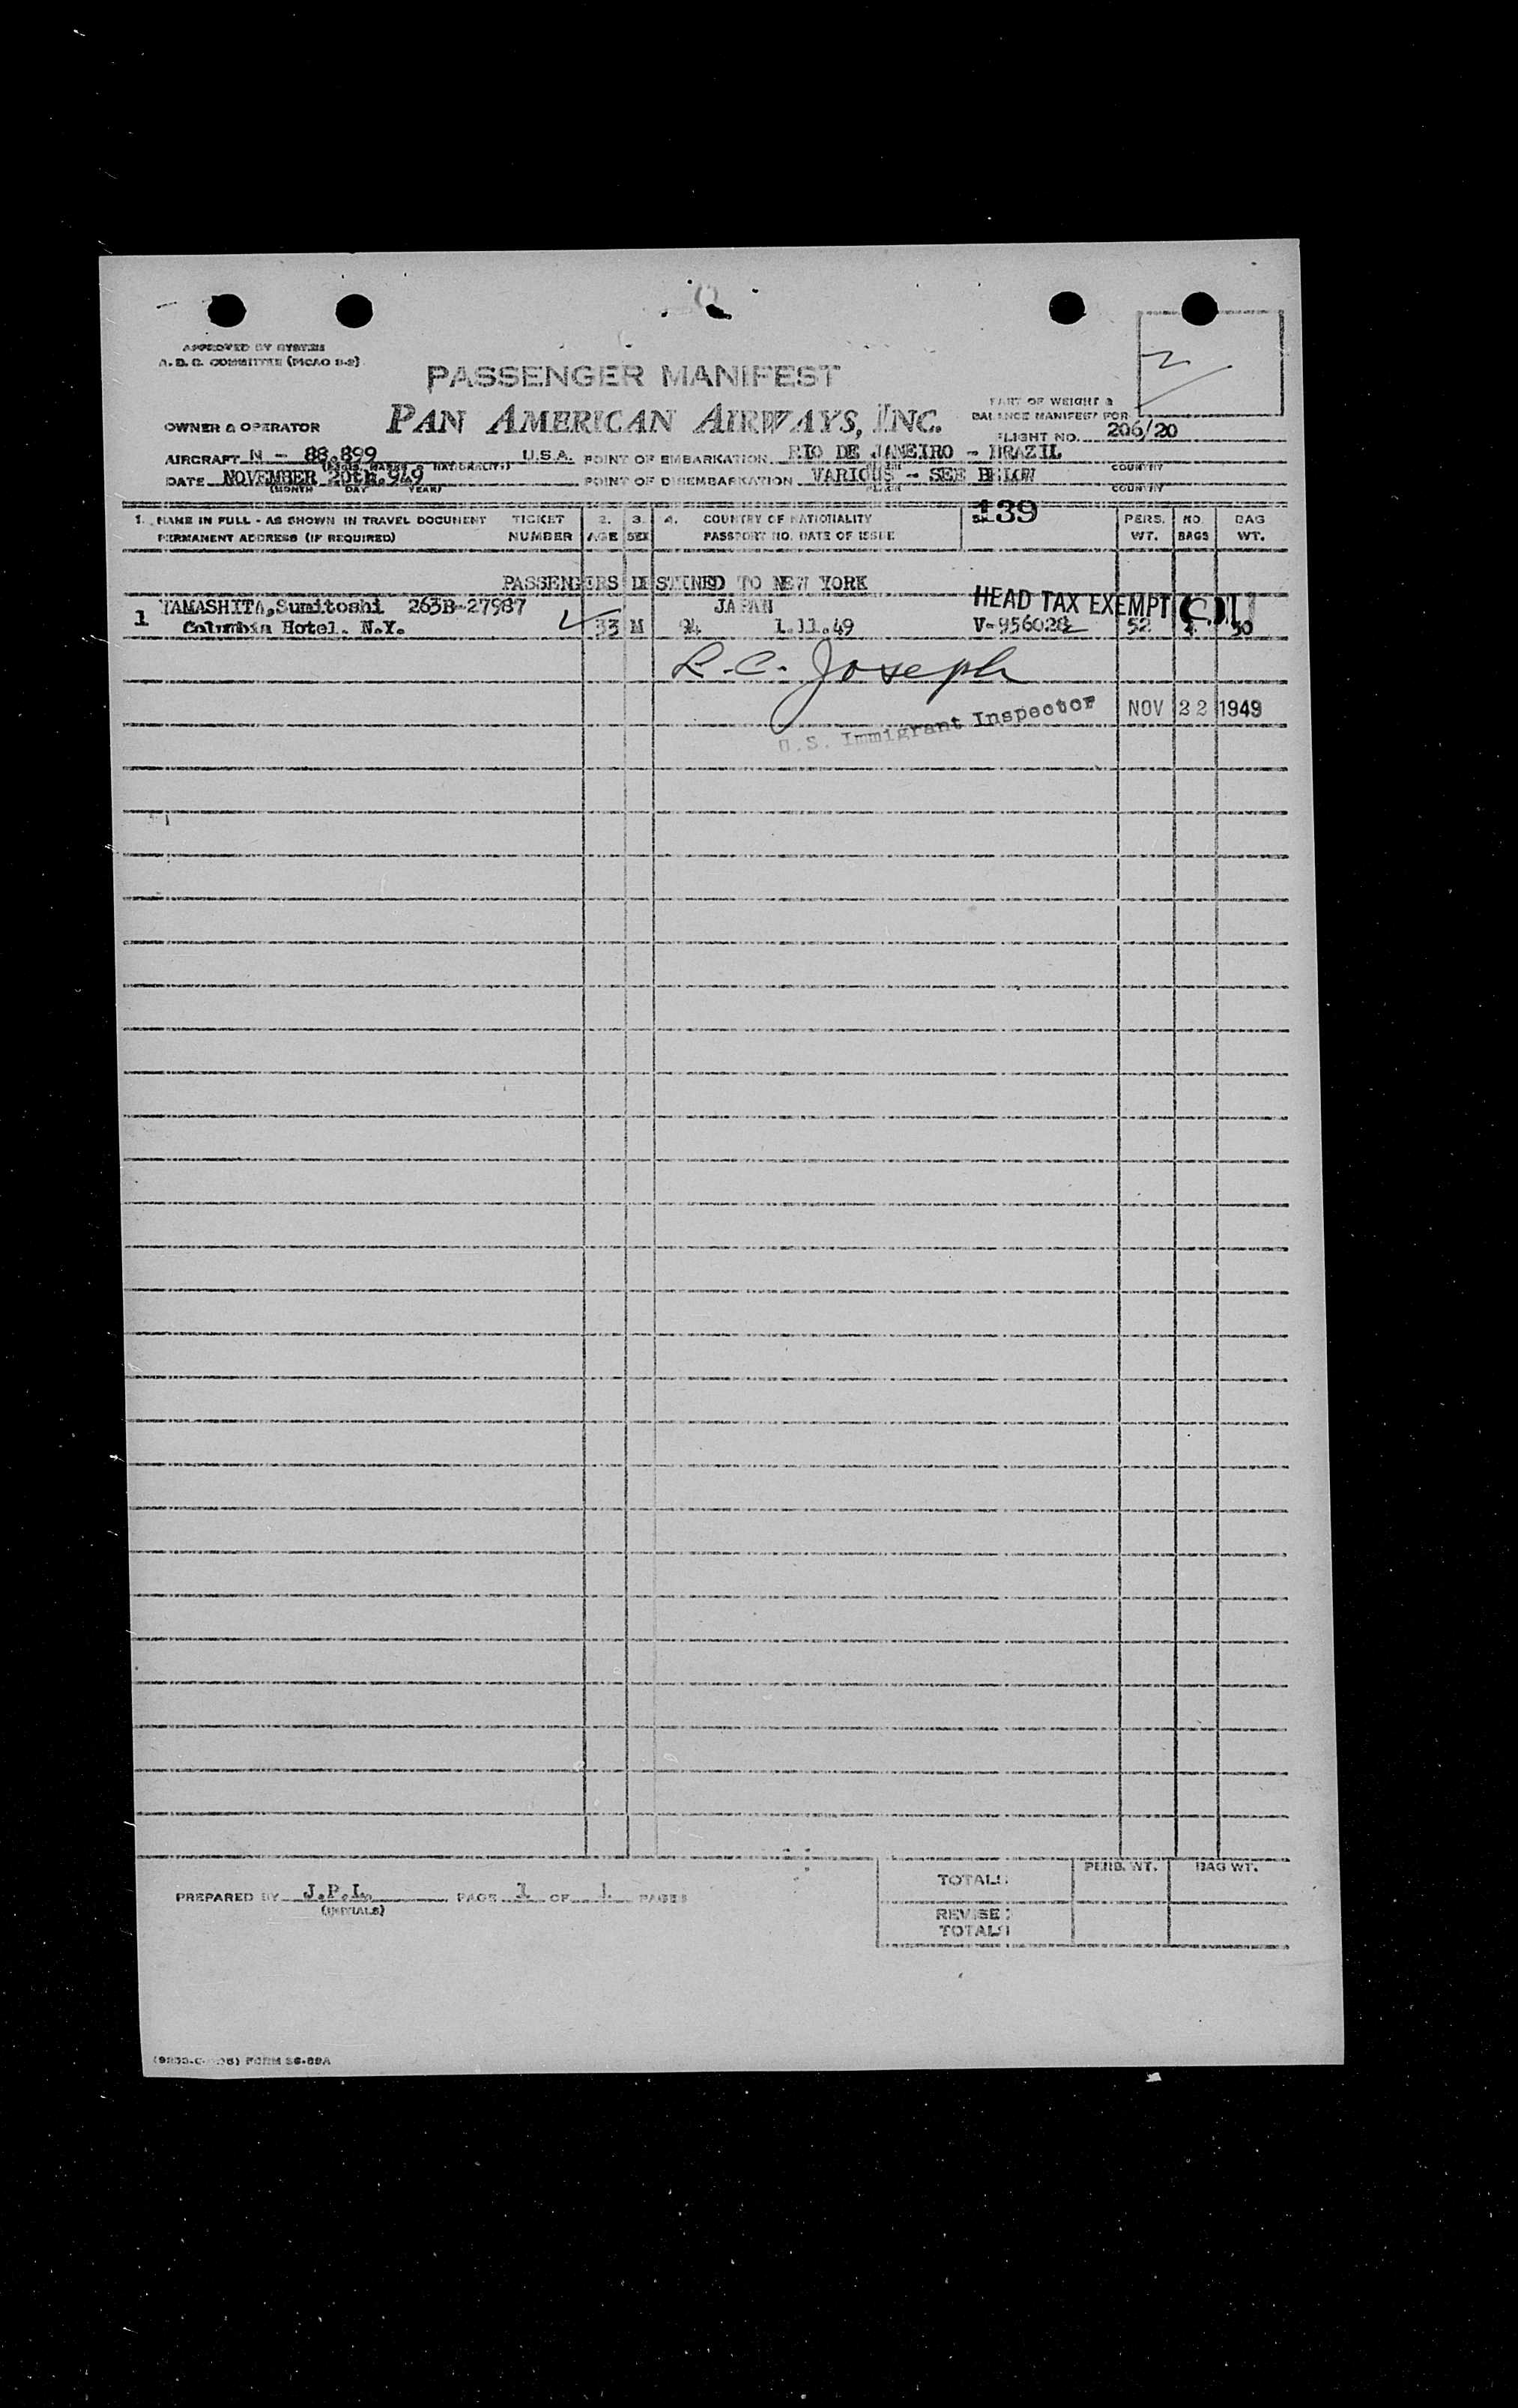 APPROVED BY SYSTEM
A. D. C. COMMITTEE (PICAO 8-2)
PASSENGER MANIFEST
PAN AMERICAN AIRWAYS, INC.
OWNER & OPERATOR
PART OF WEIGHT &
BALANCE MANIFEST FOR
FLIGHT NO. 206/20
AIRCRAFT N - 88.899 U.S.A. POINT OF EMBARKATION RIO DE JANEIRO - BRAZIL
COUNTRY
DATE NOVEMBER 20th.949 POINT OF DISEMBARKATION VARIOUS - SEE BELOW
(MONTH DAY YEAR) PLACE COUNTRY
1. NAME IN FULL - AS SHOWN IN TRAVEL DOCUMENT TICKET 2. 3. 4. COUNTRY OF NATIONALITY 139 PERS. NO. BAG
PERMANENT ADDRESS (IF REQUIRED) NUMBER AGE SEX PASSPORT NO. DATE OF ISSUE WT. BAGS WT.
PASSENGERS DESTINED TO NEW YORK
1 YAMASHITA,Sumitoshi 263B-27987 JAPAN HEAD TAX EXEMPT
Columbia Hotel. N.Y. 33 M 94 1.11.49 V-956028 52 50
L.C. Joseph
U.S. Immigrant Inspector NOV 22 1949
PERS. WT. BAG WT.
TOTALS
PREPARED BY J.P.L. PAGE 1 OF 1 PAGES
(INITIALS)
REVISED
TOTALS
FORM SS-89A